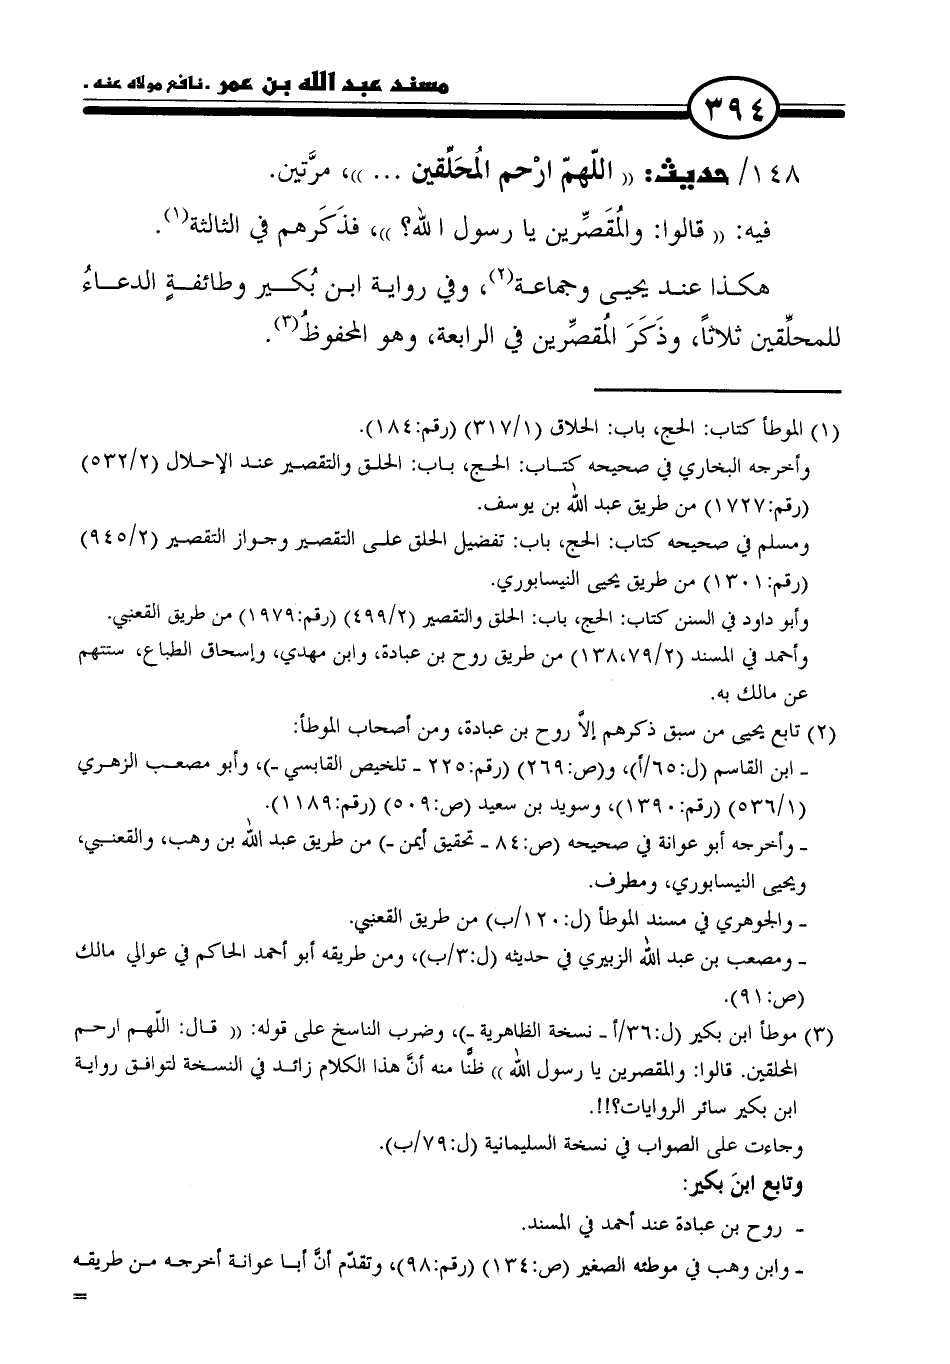 مسند عبد الله بن عمر .نافع مولاه عنه .
٣٩٤
١٤٨/ حديث: (( اللَّهمّ ارْحم المُحَلِّقين ... ))، مرَّتين.
فيه: (( قالوا: والمُقصِّرين يا رسول الله؟ ))، فذَكَرهم في الثالثة(١).
هكذا عند يحيى وجماعة(٢)، وفي رواية ابن بُكير وطائفةٍ الدعاءُ
للمحلِّقين ثلاثاً، وذَكَرَ المُقصِّرين في الرابعة، وهو المحفوظُ(٣).
(١) الموطأ كتاب: الحج، باب: الحلاق (٣١٧/١) (رقم:١٨٤).
وأخرجه البخاري في صحيحه كتاب: الحج، باب: الحلق والتقصير عند الإحلال (٥٣٢/٢)
(رقم:١٧٢٧) من طريق عبد الله بن يوسف.
ومسلم في صحيحه كتاب: الحج، باب: تفضيل الحلق على التقصير وجواز التقصير (٩٤٥/٢)
(رقم:١٣٠١) من طريق يحيى النيسابوري.
وأبو داود في السنن كتاب: الحج، باب: الحلق والتقصير (٤٩٩/٢) (رقم:١٩٧٩) من طريق القعنبي.
وأحمد في المسند (١٣٨،٧٩/٢) من طريق روح بن عبادة، وابن مهدي، وإسحاق الطباع، ستتهم
عن مالك به.
(٢) تابع يحيى من سبق ذكرهم إلاَّ روح بن عبادة، ومن أصحاب الموطأ:
ـ ابن القاسم (ل:٦٥/أ)، و(ص:٢٦٩) (رقم:٢٢٥ ـ تلخيص القابسي ـ)، وأبو مصعب الزهري
(٥٣٦/١) (رقم:١٣٩٠)، وسويد بن سعيد (ص:٥٠٩) (رقم:١١٨٩).
ـ وأخرجه أبو عوانة في صحيحه (ص:٨٤ ـ تحقيق أيمن ـ) من طريق عبد الله بن وهب، والقعنبي،
ويحيى النيسابوري، ومطرف.
ـ والجوهري في مسند الموطأ (ل:١٢٠/ب) من طريق القعنبي.
ـ ومصعب بن عبد الله الزبيري في حديثه (ل:٣/ب)، ومن طريقه أبو أحمد الحاكم في عوالي مالك
(ص:٩١).
(٣) موطأ ابن بكير (ل:٣٦/أ ـ نسخة الظاهرية ـ)، وضرب الناسخ على قوله: (( قال: اللَّهم ارحم
المحلقين. قالوا: والمقصرين يا رسول الله )) ظنًّا منه أنَّ هذا الكلام زائد في النسخة لتوافق رواية
ابن بكير سائر الروايات؟!!.
وجاءت على الصواب في نسخة السليمانية (ل:٧٩/ب).
وتابع ابنَ بكير:
ـ روح بن عبادة عند أحمد في المسند.
ـ وابن وهب في موطئه الصغير (ص:١٣٤) (رقم:٩٨)، وتقدّم أنَّ أبا عوانة أخرجه من طريقه
=